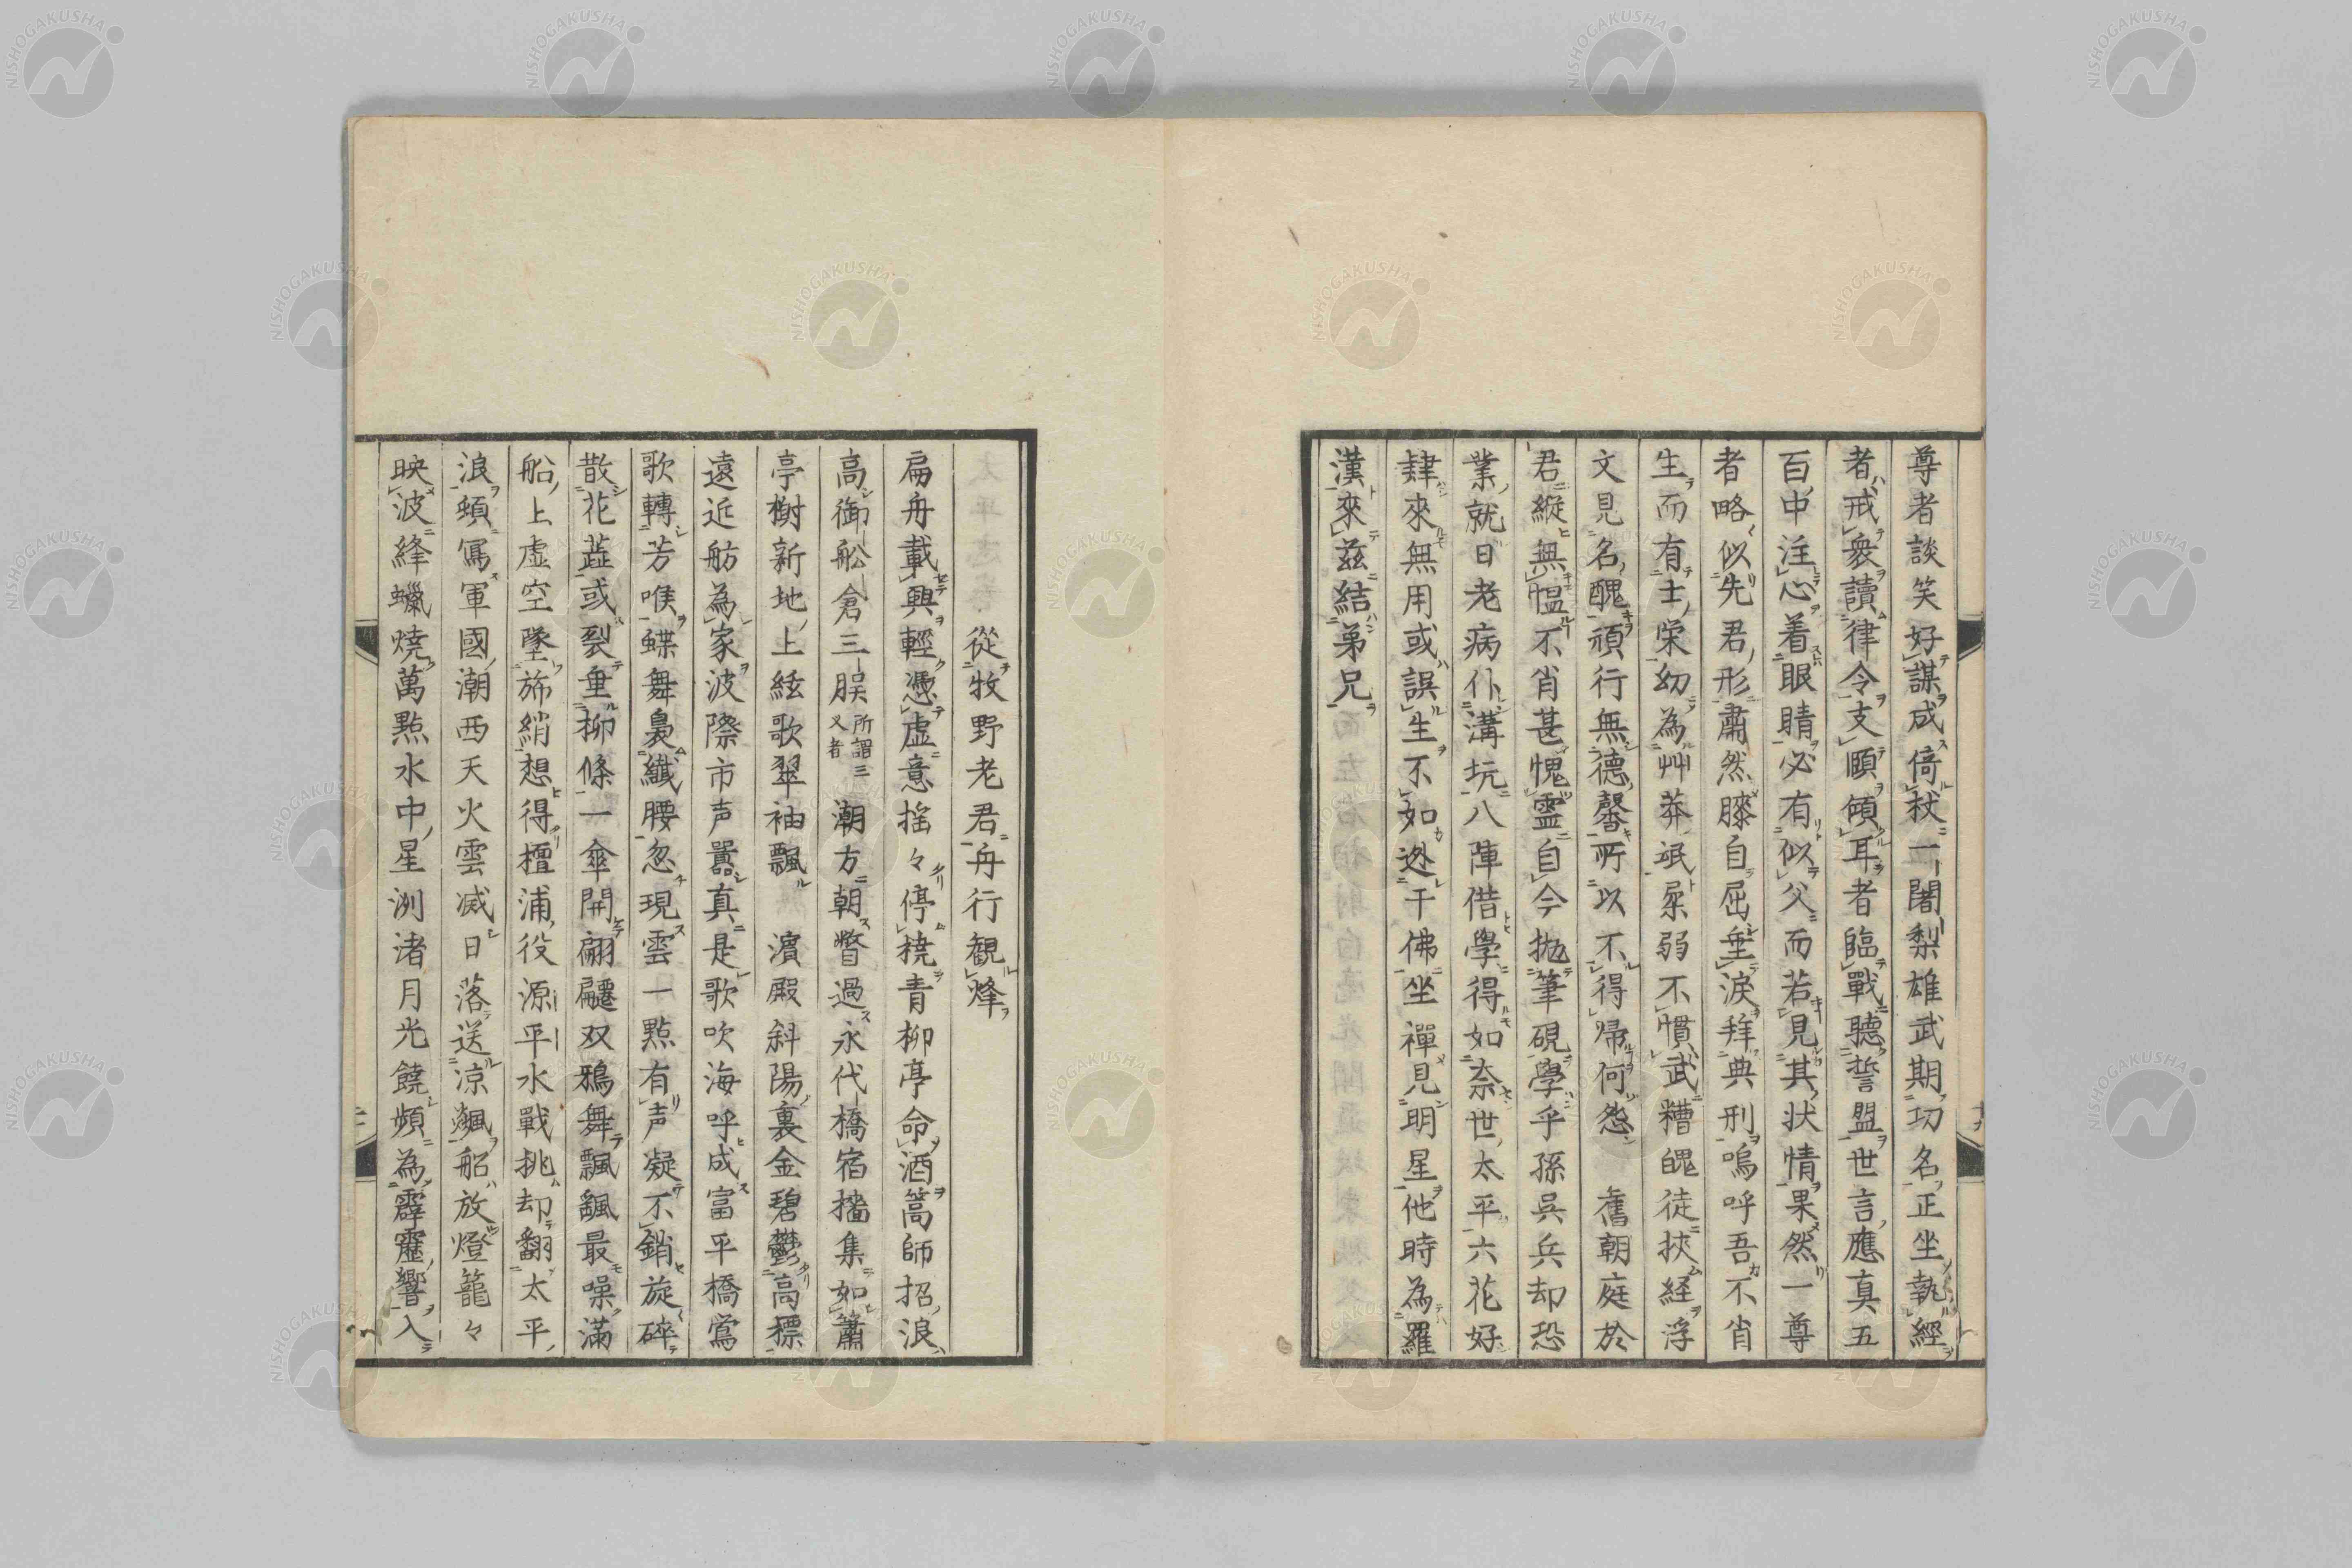 尊者談笑好謀成倚杖一闍梨雄武期功名正坐執經
者戒衆讀律令支頤傾耳者臨戰聽誓盟世言應真五
百中注心着眼睛必有似父而若見其狀情果然一尊
者略似先君形肅然膝自屈垂淚拜典刑嗚呼吾不肖
生而有士栄幼為艸莽氓孱弱不慣武糟醜徒挾経浮
文見名醜頑行無徳馨所以不得帰何怨 舊朝庭於
君縦無慍不肖甚愧霊自今抛筆硯學乎孫呉兵却恐
業就日老病仆溝坑八陣借學得如奈世太平六花好
肄來無用或誤生不如逃干佛坐禪見明星他時為羅
漢來茲結弟兄
從牧野老君舟行観烽
扁舟載興輕憑虚意揺々停橈青柳亭命酒篙師招浪
高御舩倉三脵所謂三又者 潮方朝瞥過永代橋宿檣集如簫
亭榭新地上絃歌翠袖飄 濱殿斜陽裏金碧鬱高標
遠近舫為家波際市声囂真是歌吹海呼成富平橋鴬
歌轉芳喉蝶舞裊纖腰忽現雲一點有声凝不銷旋碎
散花蕋或裂垂柳條一傘開翩躚双鴉舞飄颻最噪満
船上虚空墜旆綃想得檀浦役源平水戰挑却翻太平
浪蘋寫軍國潮西天火雲滅日落送涼飈船放燈籠々
映波絳蠟燒萬點水中星洌渚月光饒頻為霹靂響入